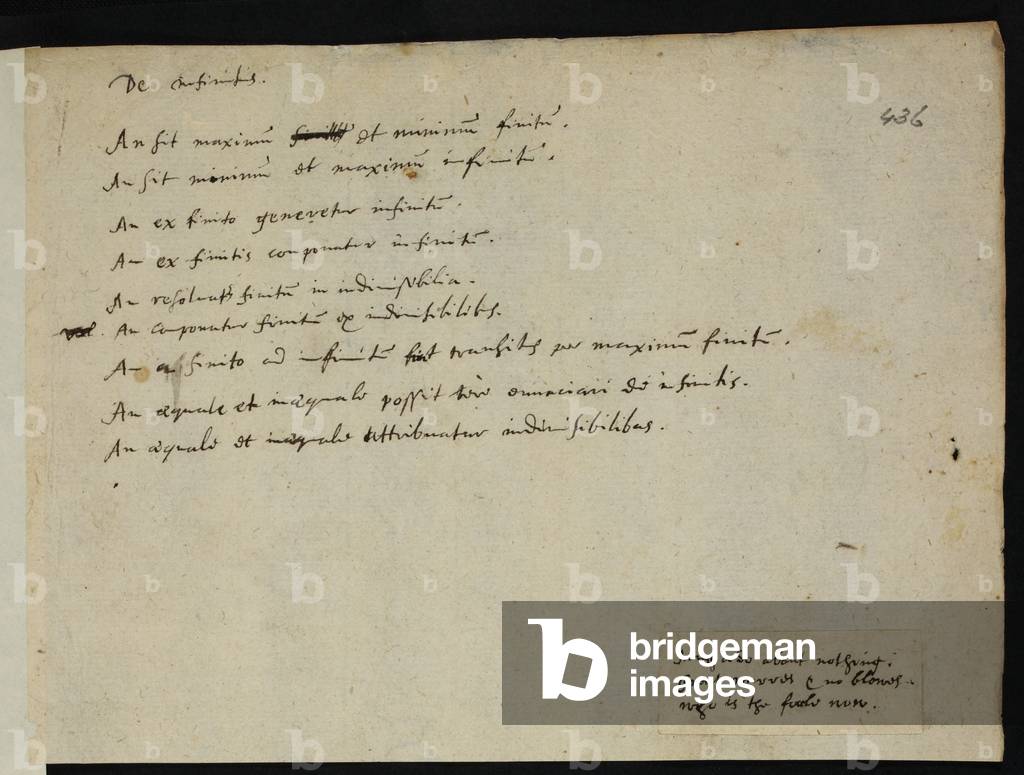 De infinitis.
436
An sit maximū et minimū finitū.
An sit minimū et maximū infinitū.
An ex finito generetur infinitū.
An ex finitis componatur infinitū.
An resoluat finitū in indiuisibilia.
vel. An componatur finitū ex indiuisibilibus.
An a finito ad infinitū fiat transitus per maximū finitū.
An æquale et inæquale possit vere enunciari de infinitis.
An æquale et inæquale attribuatur indiuisibilibus.
bridgeman
images
about nothing.
& no blowes.
who is the foole now.